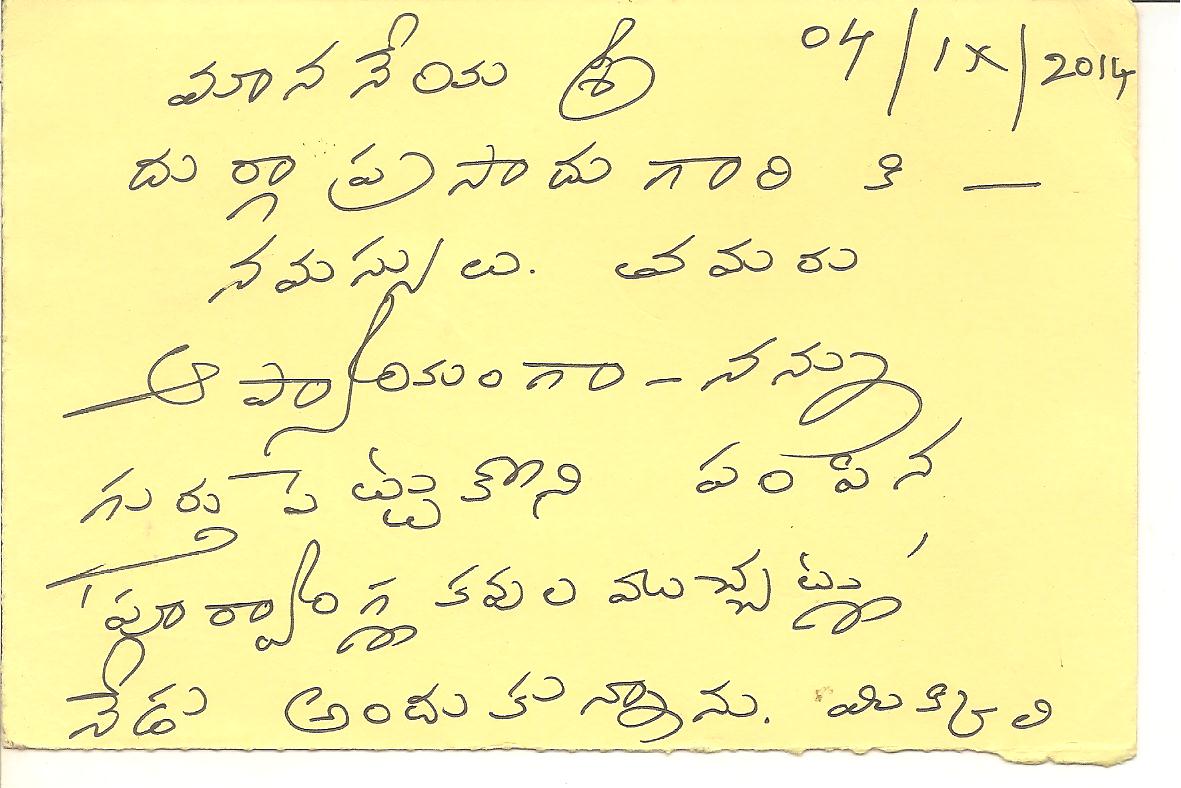 04/IX/2014
మాననీయ శ్రీ
దుర్గా ప్రసాదు గారి కి —
నమస్సులు. తమరు
ఆప్యాయంగా - నన్ను
గుర్తు పెట్టుకొని పంపిన
'పూర్వాంగ్ల కవుల ముచ్చట్లు'
నేడు అందుకున్నాను. మిక్కిలి